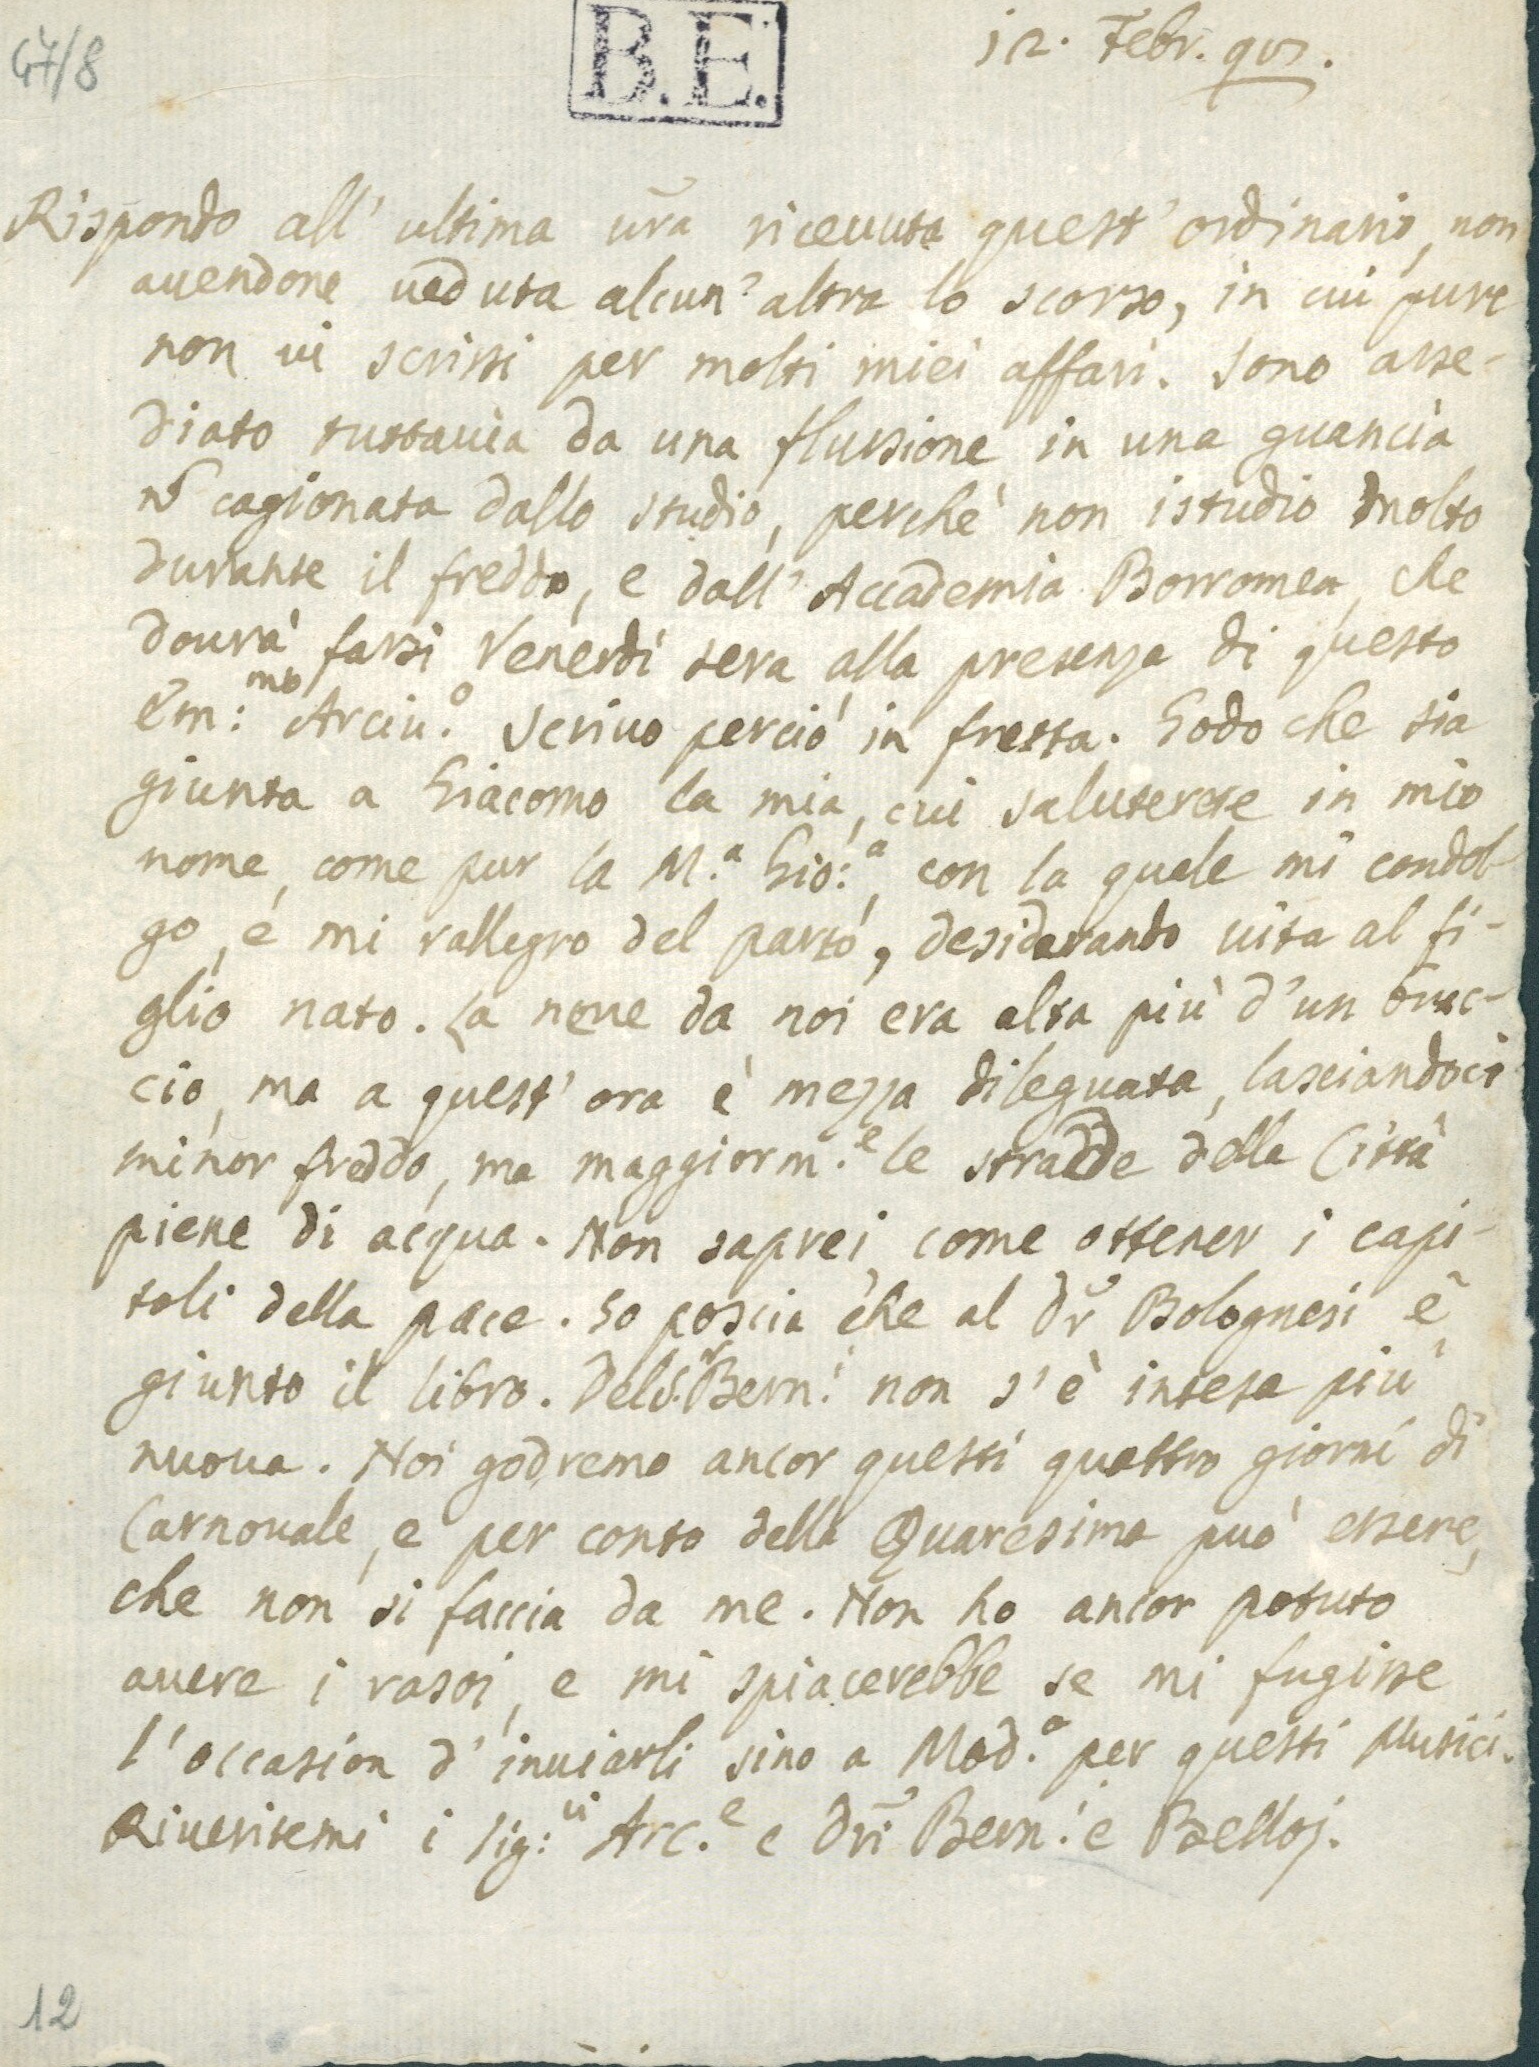 47/8
B.E.
12. Febr. 95.
Rispondo all' ultima vra ricevuta quest' ordinario, non
avendone veduta alcun' altra lo scorso, in cui pure
non vi scrissi per molti miei affari. Sono asse-
diato tuttavia da una flussione in una guancia
nõ cagionata dallo studio, perchè non istudio molto
durante il freddo, e dall' Accademia Borromea, che
dovrà farsi Venerdì sera alla presenza di questo
Em:mo Arciv.o Scrivo perciò in fretta. Godo che sia
giunta a Giacomo la mia, cui saluterete in mio
nome, come pur la M.a Gio:a, con la quale mi condol-
go, e mi rallegro del parto, desiderando vita al fi-
glio nato. La neve da noi era alta più d'un brac-
cio, ma a quest' ora è mezza dileguata, lasciandoci
minor freddo, ma maggiorm.e le strade della Città
piene di acqua. Non saprei come ottener i capi-
toli della pace. So poscia che al Dr Bolognesi è
giunto il libro. Del S.r Bern.i non s'è intesa più
nuova. Noi godremo ancor questi quattro giorni di
Carnovale, e per conto della Quaresima può essere,
che non si faccia da me. Non ho ancor potuto
avere i rasoi, e mi spiacerebbe se mi fugisse
l'occasion d'inviarli sino a Mod.a per questi Musici.
Riveritemi i Sig:ri Arc.e e Dri Bern.i e Belloj.
12